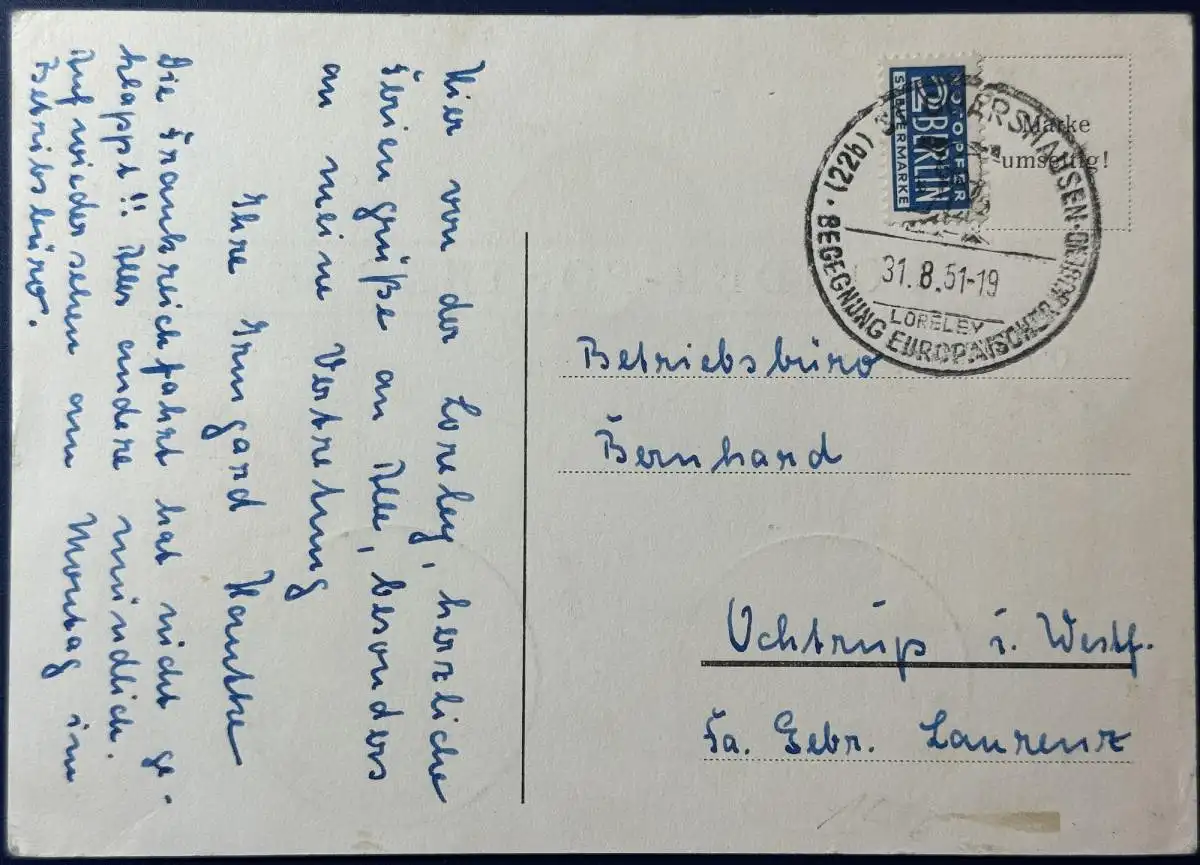 Hier von der Loreley, herzliche
Feriengrüße an Alle, besonders
an meine Vertretung
Ihre Irmgard
Die Frankreichfahrt hat nicht ge-
klappt!! Alles andere mündlich.
Auf wiedersehen am Montag im
Betriebsbüro.
NOTOPFER
2 BERLIN
STEUERMARKE
Marke
umseitig!
(22b) ARSHAUSEN
31.8.51-19
LORELEY
BEGEGNUNG EUROPÄISCHER JUGEND
Betriebsbüro
Bernhard
Ochtrup i. Westf.
Fa. Gebr. Laurenz